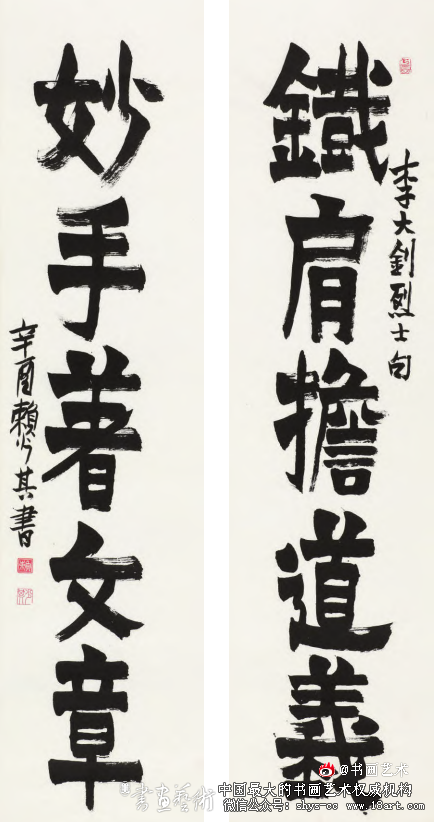 鐵肩擔道義
李大釗烈士句
妙手著文章
辛酉賴少其書
@书画艺术
書画藝術
中国最大的书画艺术权威机构
微信公众号：shys-cc www.18art.com